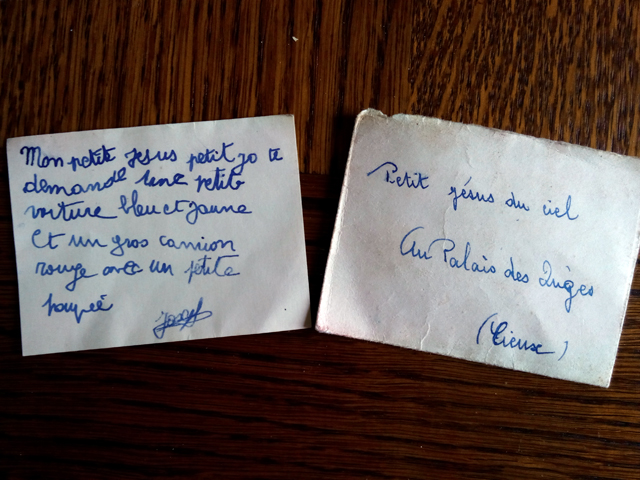 Mon petite jesus petit jo te
demande une petite
voiture bleu et jaune
Et un gros camion
rouge avec un petite
poupée
Josef
Petit jésus du ciel
Au Palais des Anges
(Cieux)